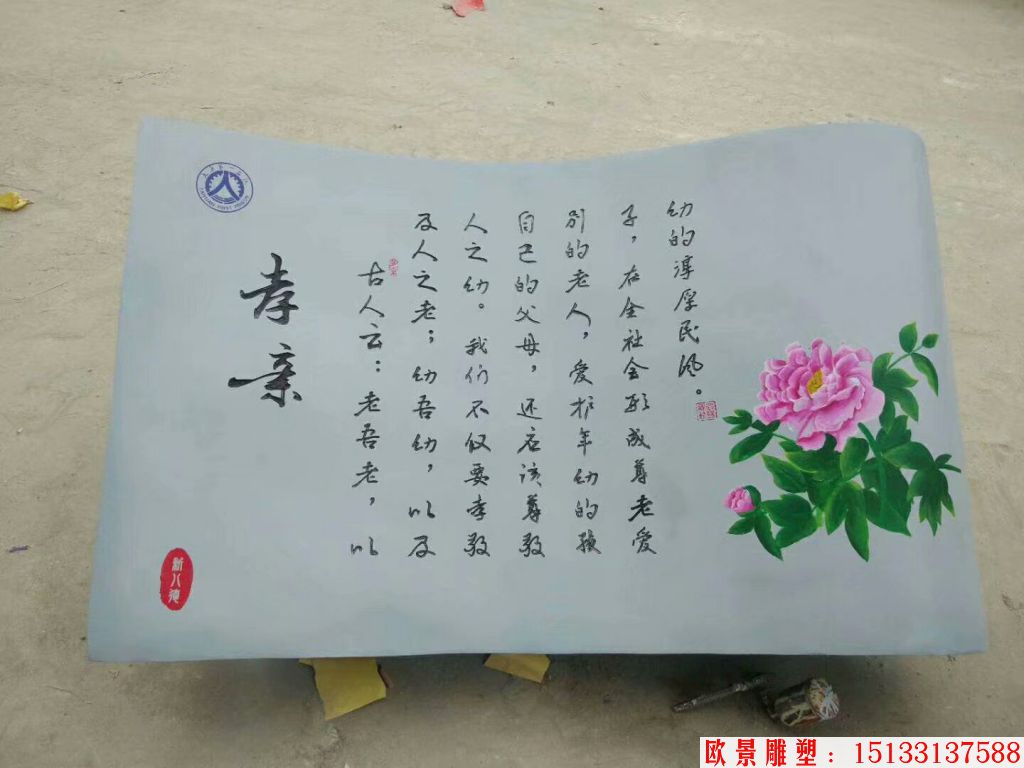 孝亲
古人云：老吾老，以
及人之老；幼吾幼，以及
人之幼。我们不仅要孝敬
自己的父母，还应该尊敬
别的老人，爱护年幼的孩
子，在全社会形成尊老爱
幼的淳厚民风。
新八德
欧景雕塑：15133137588